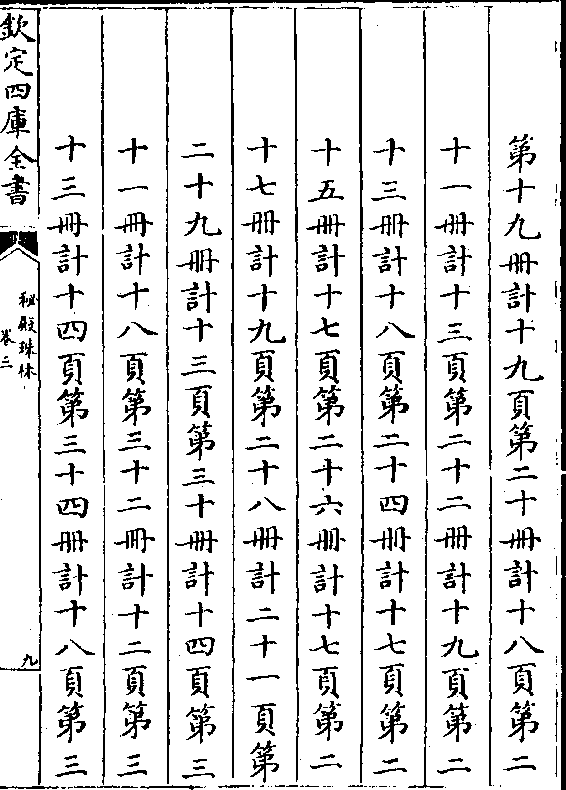 第十九册計十九頁第二十册計十八頁第二
十一册計十三頁第二十二册計十九頁第二
十三册計十八頁第二十四册計十七頁第二
十五册計十七頁第二十六册計十七頁第二
十七册計十九頁第二十八册計二十一頁第
二十九册計十三頁第三十册計十四頁第三
十一册計十八頁第三十二册計十二頁第三
十三册計十四頁第三十四册計十八頁第三
欽定四庫全書
秘殿珠林
卷二
九